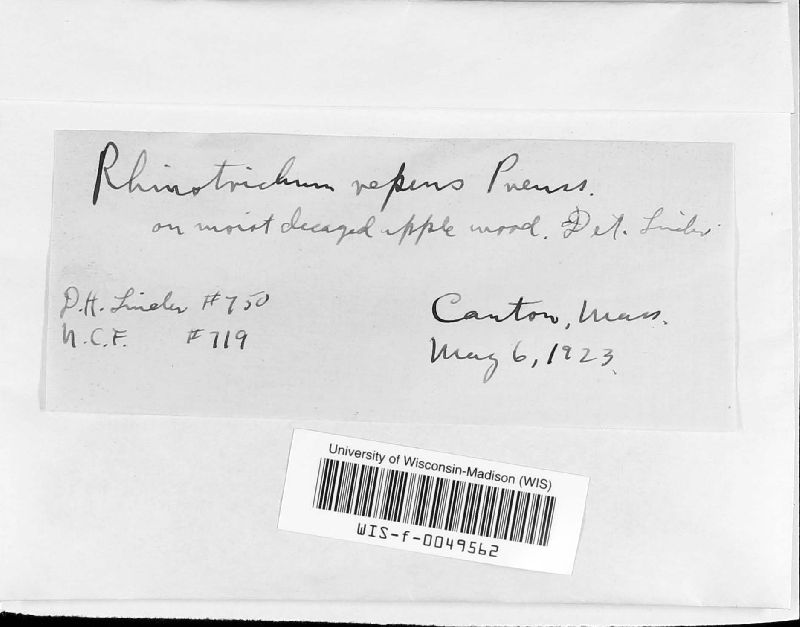 Rhinotrichum repens Preuss.
on moist decayed apple wood. Det. Linder
D.H. Linder #750
N.C.F. #719
Canton, Mass.
May 6, 1923.
University of Wisconsin-Madison (WIS)
WIS-f-0049562